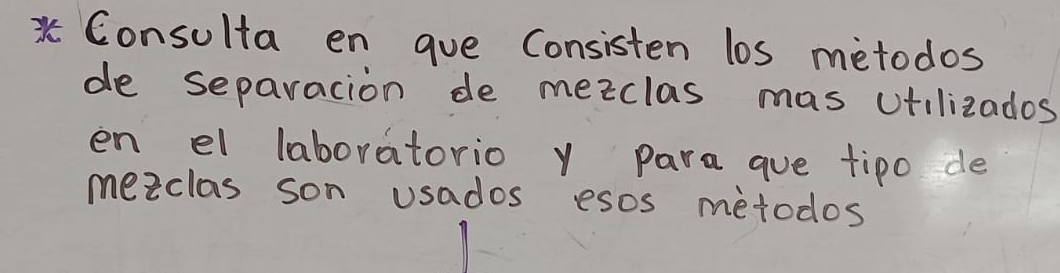 * Consulta en que Consisten los métodos
de separación de mezclas mas utilizados
en el laboratorio y para que tipo de
mezclas son usados esos métodos